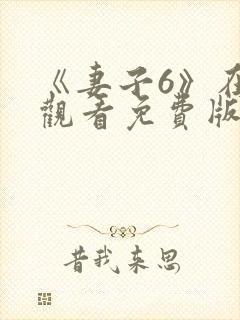 《妻子6》在
觀看免費版
昔我来思